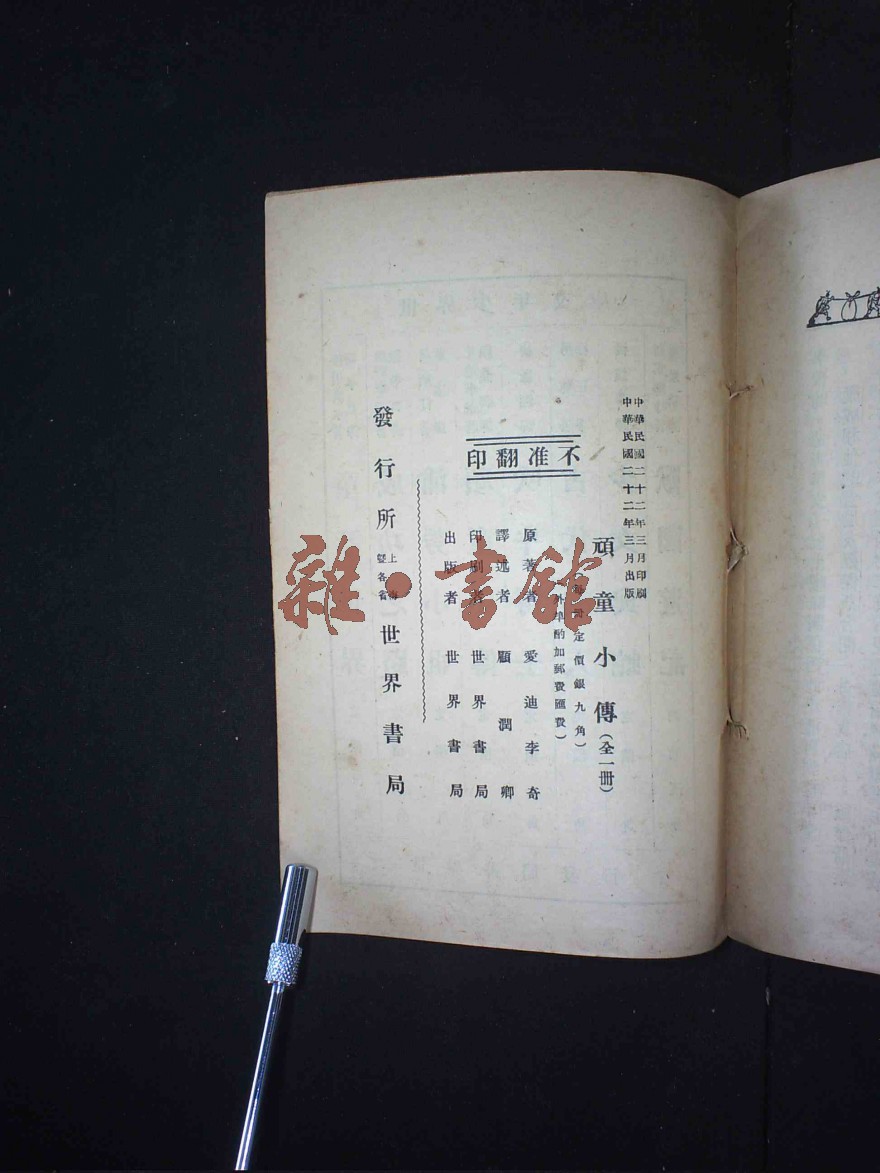 中華民國二十二年三月印刷
中華民國二十二年三月出版
頑童小傳（全一冊）
定價銀九角）
酌加郵費匯費）
不准翻印
原著者 愛迪李奇
譯述者 顧潤卿
印刷者 世界書局
出版者 世界書局
發行所 上海暨各省 世界書局
雜·書館